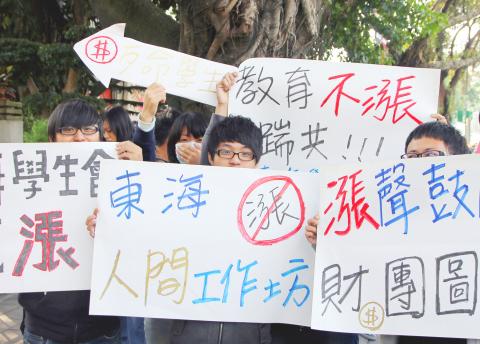 學生
教育不漲
踹共!!!
學生會
漲
東海 漲
人間工作坊
漲聲鼓
財團圖